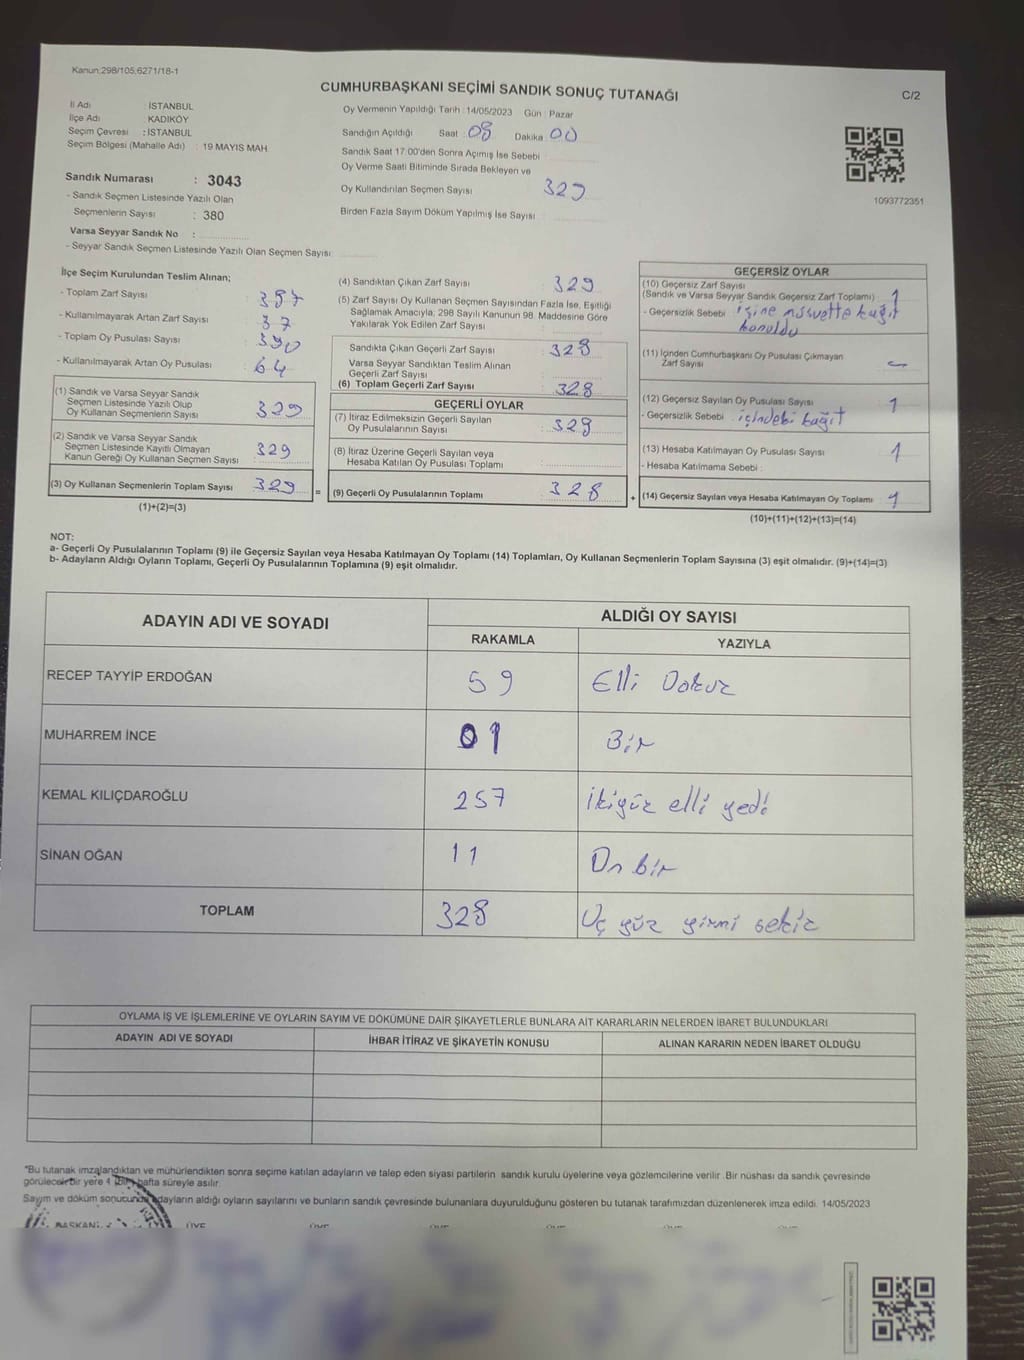 Kanun:298/105;6271/18-1
CUMHURBAŞKANI SEÇİMİ SANDIK SONUÇ TUTANAĞI
C/2
İl Adı : İSTANBUL
İlçe Adı : KADIKÖY
Seçim Çevresi : İSTANBUL
Seçim Bölgesi (Mahalle Adı) : 19 MAYIS MAH.
Sandık Numarası : 3043
- Sandık Seçmen Listesinde Yazılı Olan
Seçmenlerin Sayısı : 380
Varsa Seyyar Sandık No :
- Seyyar Sandık Seçmen Listesinde Yazılı Olan Seçmen Sayısı:
Oy Vermenin Yapıldığı Tarih : 14/05/2023 Gün : Pazar
Sandığın Açıldığı Saat : 08 Dakika : 00
Sandık Saat 17:00'den Sonra Açımış İse Sebebi
Oy Verme Saati Bitiminde Sırada Bekleyen ve
Oy Kullandırılan Seçmen Sayısı 329
Birden Fazla Sayım Döküm Yapılmış İse Sayısı :
1093772351
İlçe Seçim Kurulundan Teslim Alınan;
- Toplam Zarf Sayısı : 387
- Kullanılmayarak Artan Zarf Sayısı : 37
- Toplam Oy Pusulası Sayısı : 390
- Kullanılmayarak Artan Oy Pusulası : 64
(1) Sandık ve Varsa Seyyar Sandık
Seçmen Listesinde Yazılı Olup
Oy Kullanan Seçmenlerin Sayısı : 329
(2) Sandık ve Varsa Seyyar Sandık
Seçmen Listesinde Kayıtlı Olmayan
Kanun Gereği Oy Kullanan Seçmen Sayısı : 329
(3) Oy Kullanan Seçmenlerin Toplam Sayısı : 329
(1)+(2)=(3)
=
(4) Sandıktan Çıkan Zarf Sayısı : 329
(5) Zarf Sayısı Oy Kullanan Seçmen Sayısından Fazla İse, Eşitliği
Sağlamak Amacıyla, 298 Sayılı Kanunun 98. Maddesine Göre
Yakılarak Yok Edilen Zarf Sayısı :
Sandıkta Çıkan Geçerli Zarf Sayısı : 328
Varsa Seyyar Sandıktan Teslim Alınan
Geçerli Zarf Sayısı :
(6) Toplam Geçerli Zarf Sayısı : 328
GEÇERLİ OYLAR
(7) İtiraz Edilmeksizin Geçerli Sayılan
Oy Pusulalarının Sayısı : 328
(8) İtiraz Üzerine Geçerli Sayılan veya
Hesaba Katılan Oy Pusulası Toplamı :
(9) Geçerli Oy Pusulalarının Toplamı : 328
+
GEÇERSİZ OYLAR
(10) Geçersiz Zarf Sayısı
(Sandık ve Varsa Seyyar Sandık Geçersiz Zarf Toplamı) : 1
- Geçersizlik Sebebi : içine müsvette kağıt
konuldu
(11) İçinden Cumhurbaşkanı Oy Pusulası Çıkmayan
Zarf Sayısı : -
(12) Geçersiz Sayılan Oy Pusulası Sayısı : 1
- Geçersizlik Sebebi : içindeki kağıt
(13) Hesaba Katılmayan Oy Pusulası Sayısı : 1
- Hesaba Katılmama Sebebi :
(14) Geçersiz Sayılan veya Hesaba Katılmayan Oy Toplamı : 1
(10)+(11)+(12)+(13)=(14)
NOT:
a- Geçerli Oy Pusulalarının Toplamı (9) ile Geçersiz Sayılan veya Hesaba Katılmayan Oy Toplamı (14) Toplamları, Oy Kullanan Seçmenlerin Toplam Sayısına (3) eşit olmalıdır. (9)+(14)=(3)
b- Adayların Aldığı Oyların Toplamı, Geçerli Oy Pusulalarının Toplamına (9) eşit olmalıdır.
ADAYIN ADI VE SOYADI
ALDIĞI OY SAYISI
RAKAMLA YAZIYLA
RECEP TAYYİP ERDOĞAN 59 Elli Dokuz
MUHARREM İNCE 01 Bir
KEMAL KILIÇDAROĞLU 257 İkiyüz elli yedi
SİNAN OĞAN 11 On bir
TOPLAM 328 Üç yüz yirmi sekiz
OYLAMA İŞ VE İŞLEMLERİNE VE OYLARIN SAYIM VE DÖKÜMÜNE DAİR ŞİKAYETLERLE BUNLARA AİT KARARLARIN NELERDEN İBARET BULUNDUKLARI
ADAYIN ADI VE SOYADI İHBAR İTİRAZ VE ŞİKAYETİN KONUSU ALINAN KARARIN NEDEN İBARET OLDUĞU
*Bu tutanak imzalandıktan ve mühürlendikten sonra seçime katılan adayların ve talep eden siyasi partilerin sandık kurulu üyelerine veya gözlemcilerine verilir. Bir nüshası da sandık çevresinde
görülecek bir yere 1 (Bir) hafta süreyle asılır.
Sayım ve döküm sonucunda adayların aldığı oyların sayılarını ve bunların sandık çevresinde bulunanlara duyurulduğunu gösteren bu tutanak tarafımızdan düzenlenerek imza edildi. 14/05/2023
BAŞKAN ÜYE ÜYE ÜYE ÜYE ÜYE ÜYE